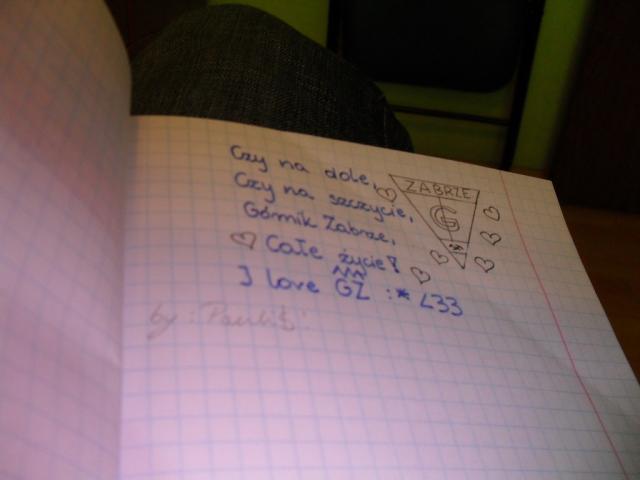 Czy na dole,
Czy na szczycie,
Górnik Zabrze,
Całe życie!
I love GZ :* <33
by: Pauliś!
ZABRZE
G